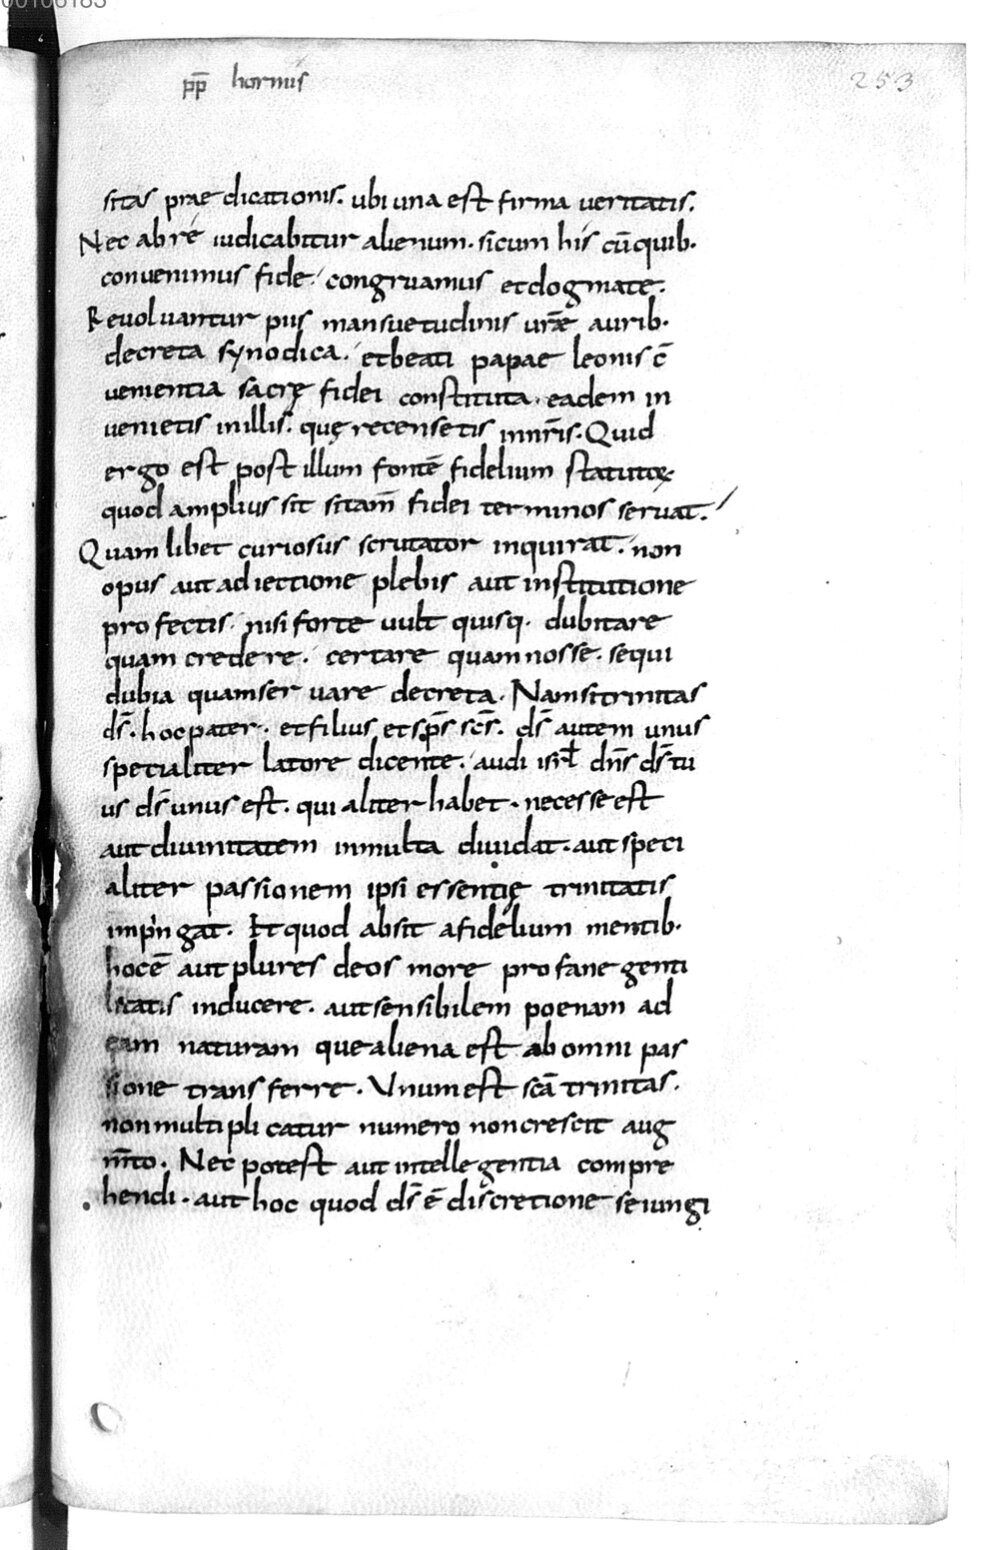 00106183
pp̄ hormis
253
sitas praedicationis. ubi una est firma ueritatis.
Nec ab ré iudicabitur alienum. sicum his cū quib.
conuenimus fide. congruamus et dogmate.
Reuoluantur piis mansuetudinis urǣ aurib.
decreta synodica. et beati papae leonis c̄
uenientia sacrę fidei constituta. eadem in
uenietis in illis. quę recensetis in nr̄is. Quid
ergo est post illum fontē fidelium statutoꝝ
quod amplius sit sitam̄ fidei terminos seruat.
Quam libet curiosus scrutator inquirat. non
opus aut adiectione plebis aut institutione
profectis. nisi forte uult quisq. dubitare
quam credere. certare quam nosse. sequi
dubia quam seruare decreta. Nam si trinitas
dс̄. hoc pater. et filius et sp̄s sc̄s. ds̄ autem unus
specialiter latore dicente. audi isrł dn̄s ds̄ tu
us ds̄ unus est. qui aliter habet. necesse est
aut diuinitatem in multa diuidat. aut speci
aliter passionem ipsi essentię trinitatis
impingat. Et quod absit a fidelium mentib.
hoc ē aut plures deos more profane genti
litatis inducere. aut sensibilem poenam ad
eam naturam que aliena est ab omni pas
sione transferre. Unum est scā trinitas.
non multiplicatur numero non crescit aug
m̄to. Nec potest aut intellegentia compre
hendi. aut hoc quod ds̄ ē discretione seiungi